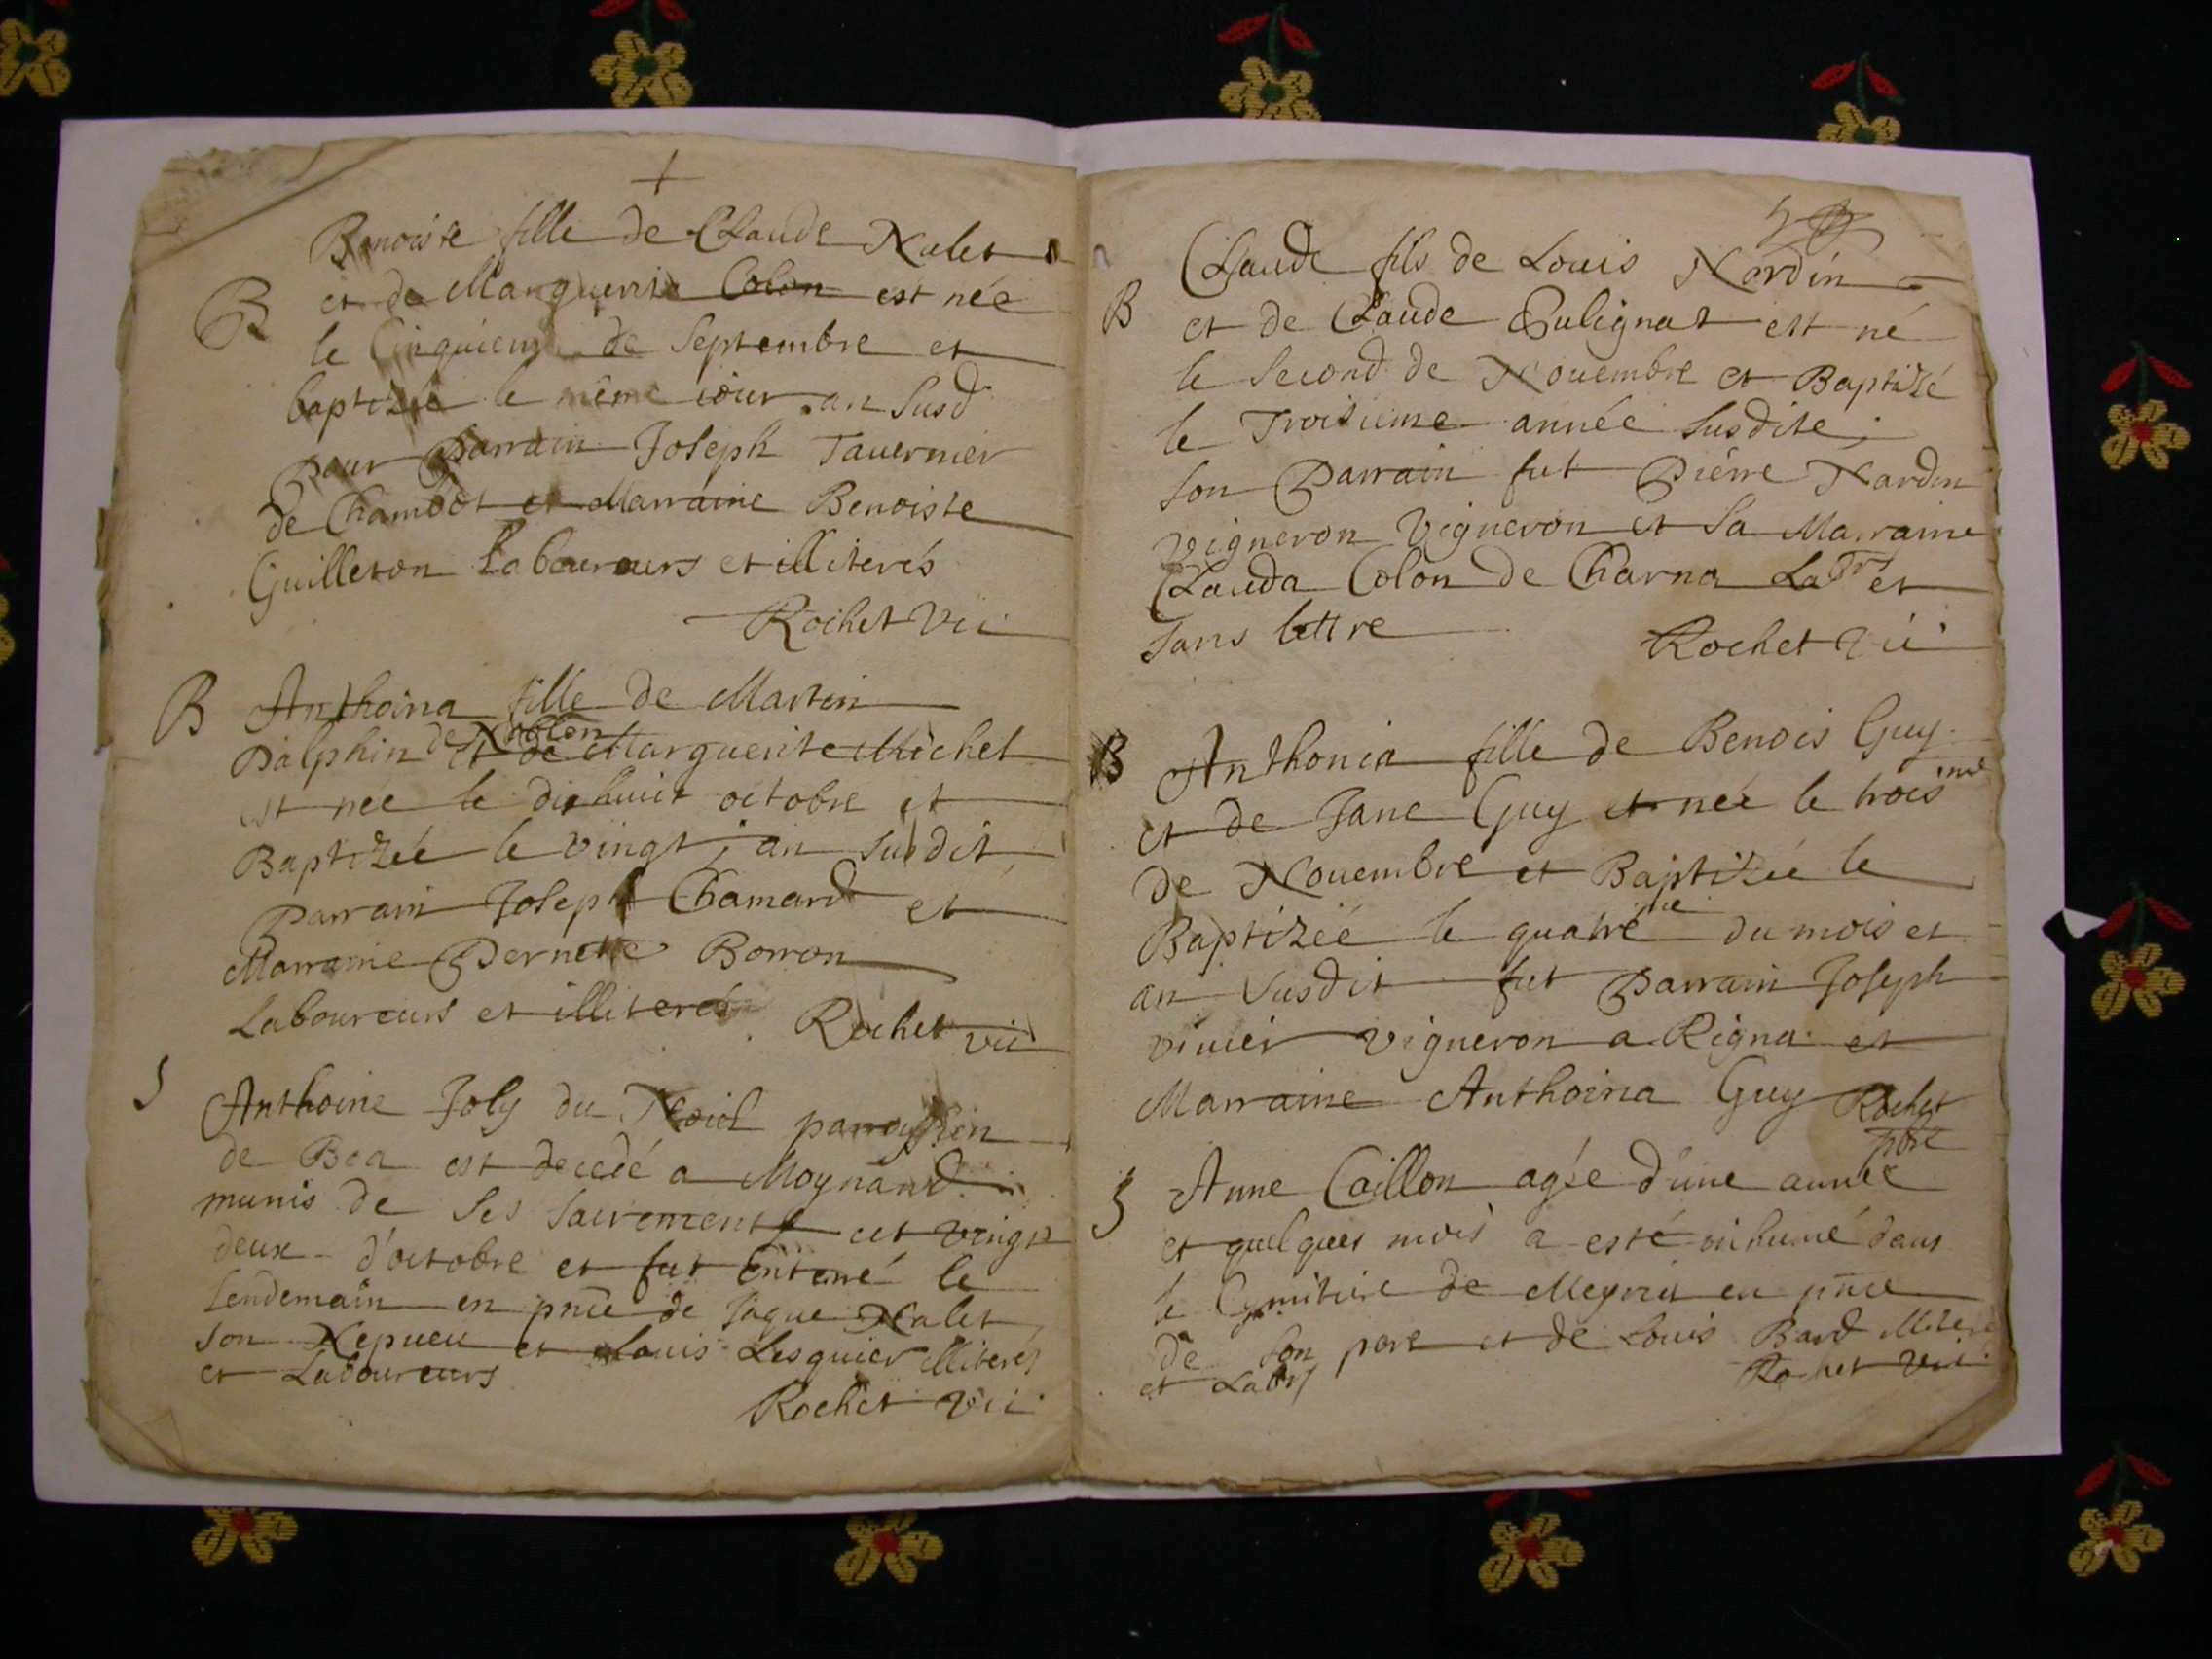 +
Benoiste fille de Claude Nalet
B et de Marguerite Colon est née
le Cinquieme de Septembre et
baptizée le même iour an Susd
pour Parrain Joseph Tauernier
de Chambôt et Marraine Benoiste
Guilleton Laboureurs et illiterés
Rochet Vic
B Anthoina fille de Martin
Dalphin de Noblon et de Marguerite Michel
est née le dixhuict octobre et
Baptizée le vingt ; an susdit
Parrain Joseph Chamard et
Marraine Pernette Borron
Laboureurs et illiterés Rochet vic
S Anthoine Joly du paroyssien
de Boa est decedé a Moynand
munis de Ses Sacrements cet vingt
deux d'octobre et fut Enterré le
Lendemain en pnce de Jaque Nalet
son Nepueu et Louis Lesquier illiterés
et Laboureurs
Rochet Vic
Claude fils de Louis Nardin
B et de Claude Pulignat est né
le Second de Nouembre et Baptizé
le Troisieme année susdite ;
son Parrain fut Pierre Nardin
vigneron Vigneron et Sa Marraine
Clauda Colon de Charna Labrs et
sans lettre Rochet Vic
B Anthonia fille de Benois Guy
et de Jane Guy et née le troisme
de Nouembre et Baptizée le
Baptizéé le quatrème du mois et
an susdit fut Parrain Joseph
viuier vigneron a Rigna et
Marraine Anthoina Guy Rochet
pbre
S Anne Caillon agée d'une année
et quelques mois a esté inhumé dans
le Cymitiere de Meyria en pnce
de son pere et de Louis Bard illiterés
et Labrs Rochet Vic